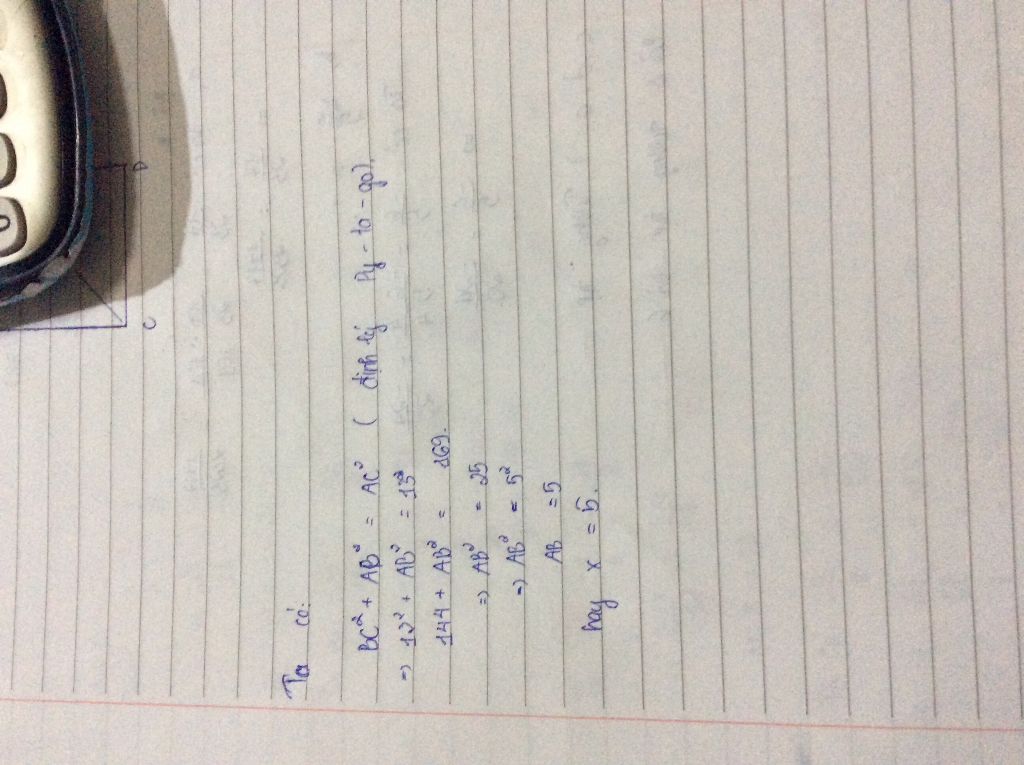 C
D
0
Ta có:
BC² + AB² = AC² ( định lý Py-ta-go).
=> 12² + AB² = 13²
144 + AB² = 169.
=> AB² = 25
=> AB² = 5²
AB = 5
hay x = 5.